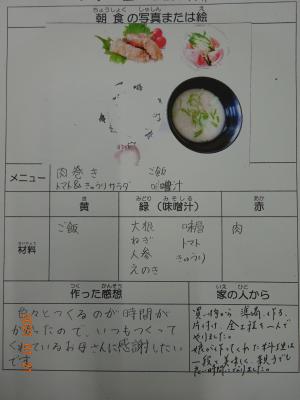 ちょうしょく しゃしん え
朝食の写真または絵
メニュー
肉巻き ご飯
トマト&きゅうりサラダ 味噌汁
き
黄
みどり みそしる
緑（味噌汁）
あか
赤
ざいりょう
材料
ご飯
大根 味噌
ねぎ トマト
人参 きゅうり
えのき
肉
つく かんそう
作った感想
いえ ひと
家の人から
色々とつくるのが時間が
かかったので、いつもつくって
くれているお母さんに感謝したい
です。
買い物から準備、作る、
片付け、全工程を一人で
やりました。
娘が作ってくれた料理は
一段と美味しく、親子でも
良い時間になりました。